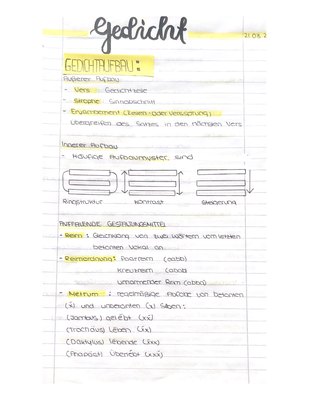 Gedicht
21.09.2
GEDICHTAUFBAU:
Äußerer Aufbau
- Vers: Gedichtzeile
- Strophe: Sinnabschnitt
- Enjambement (Zeilen- oder Verssprung):
übergreifen des Satzes in den nächsten Vers
Innerer Aufbau
- Häufige Aufbaumuster sind
Ringstruktur Kontrast Steigerung
AUFFALLENDE GESTALTUNGSMITTEL
- Reim: Gleichklang von zwei Wörtern vom letzten
betonten Vokal an.
- Reimordnung: Paarreim (aabb)
Kreuzreim (abab)
umarmender Reim (abba)
- Metrum: regelmäßige Abfolge von betonten
(x́) und unbetonten (x) Silben:
(Jambus) gelebt (xx́)
(Trochäus) Leben (x́x)
(Daktylus) lebende (x́xx)
(Anapäst) überlebt (xxx́)